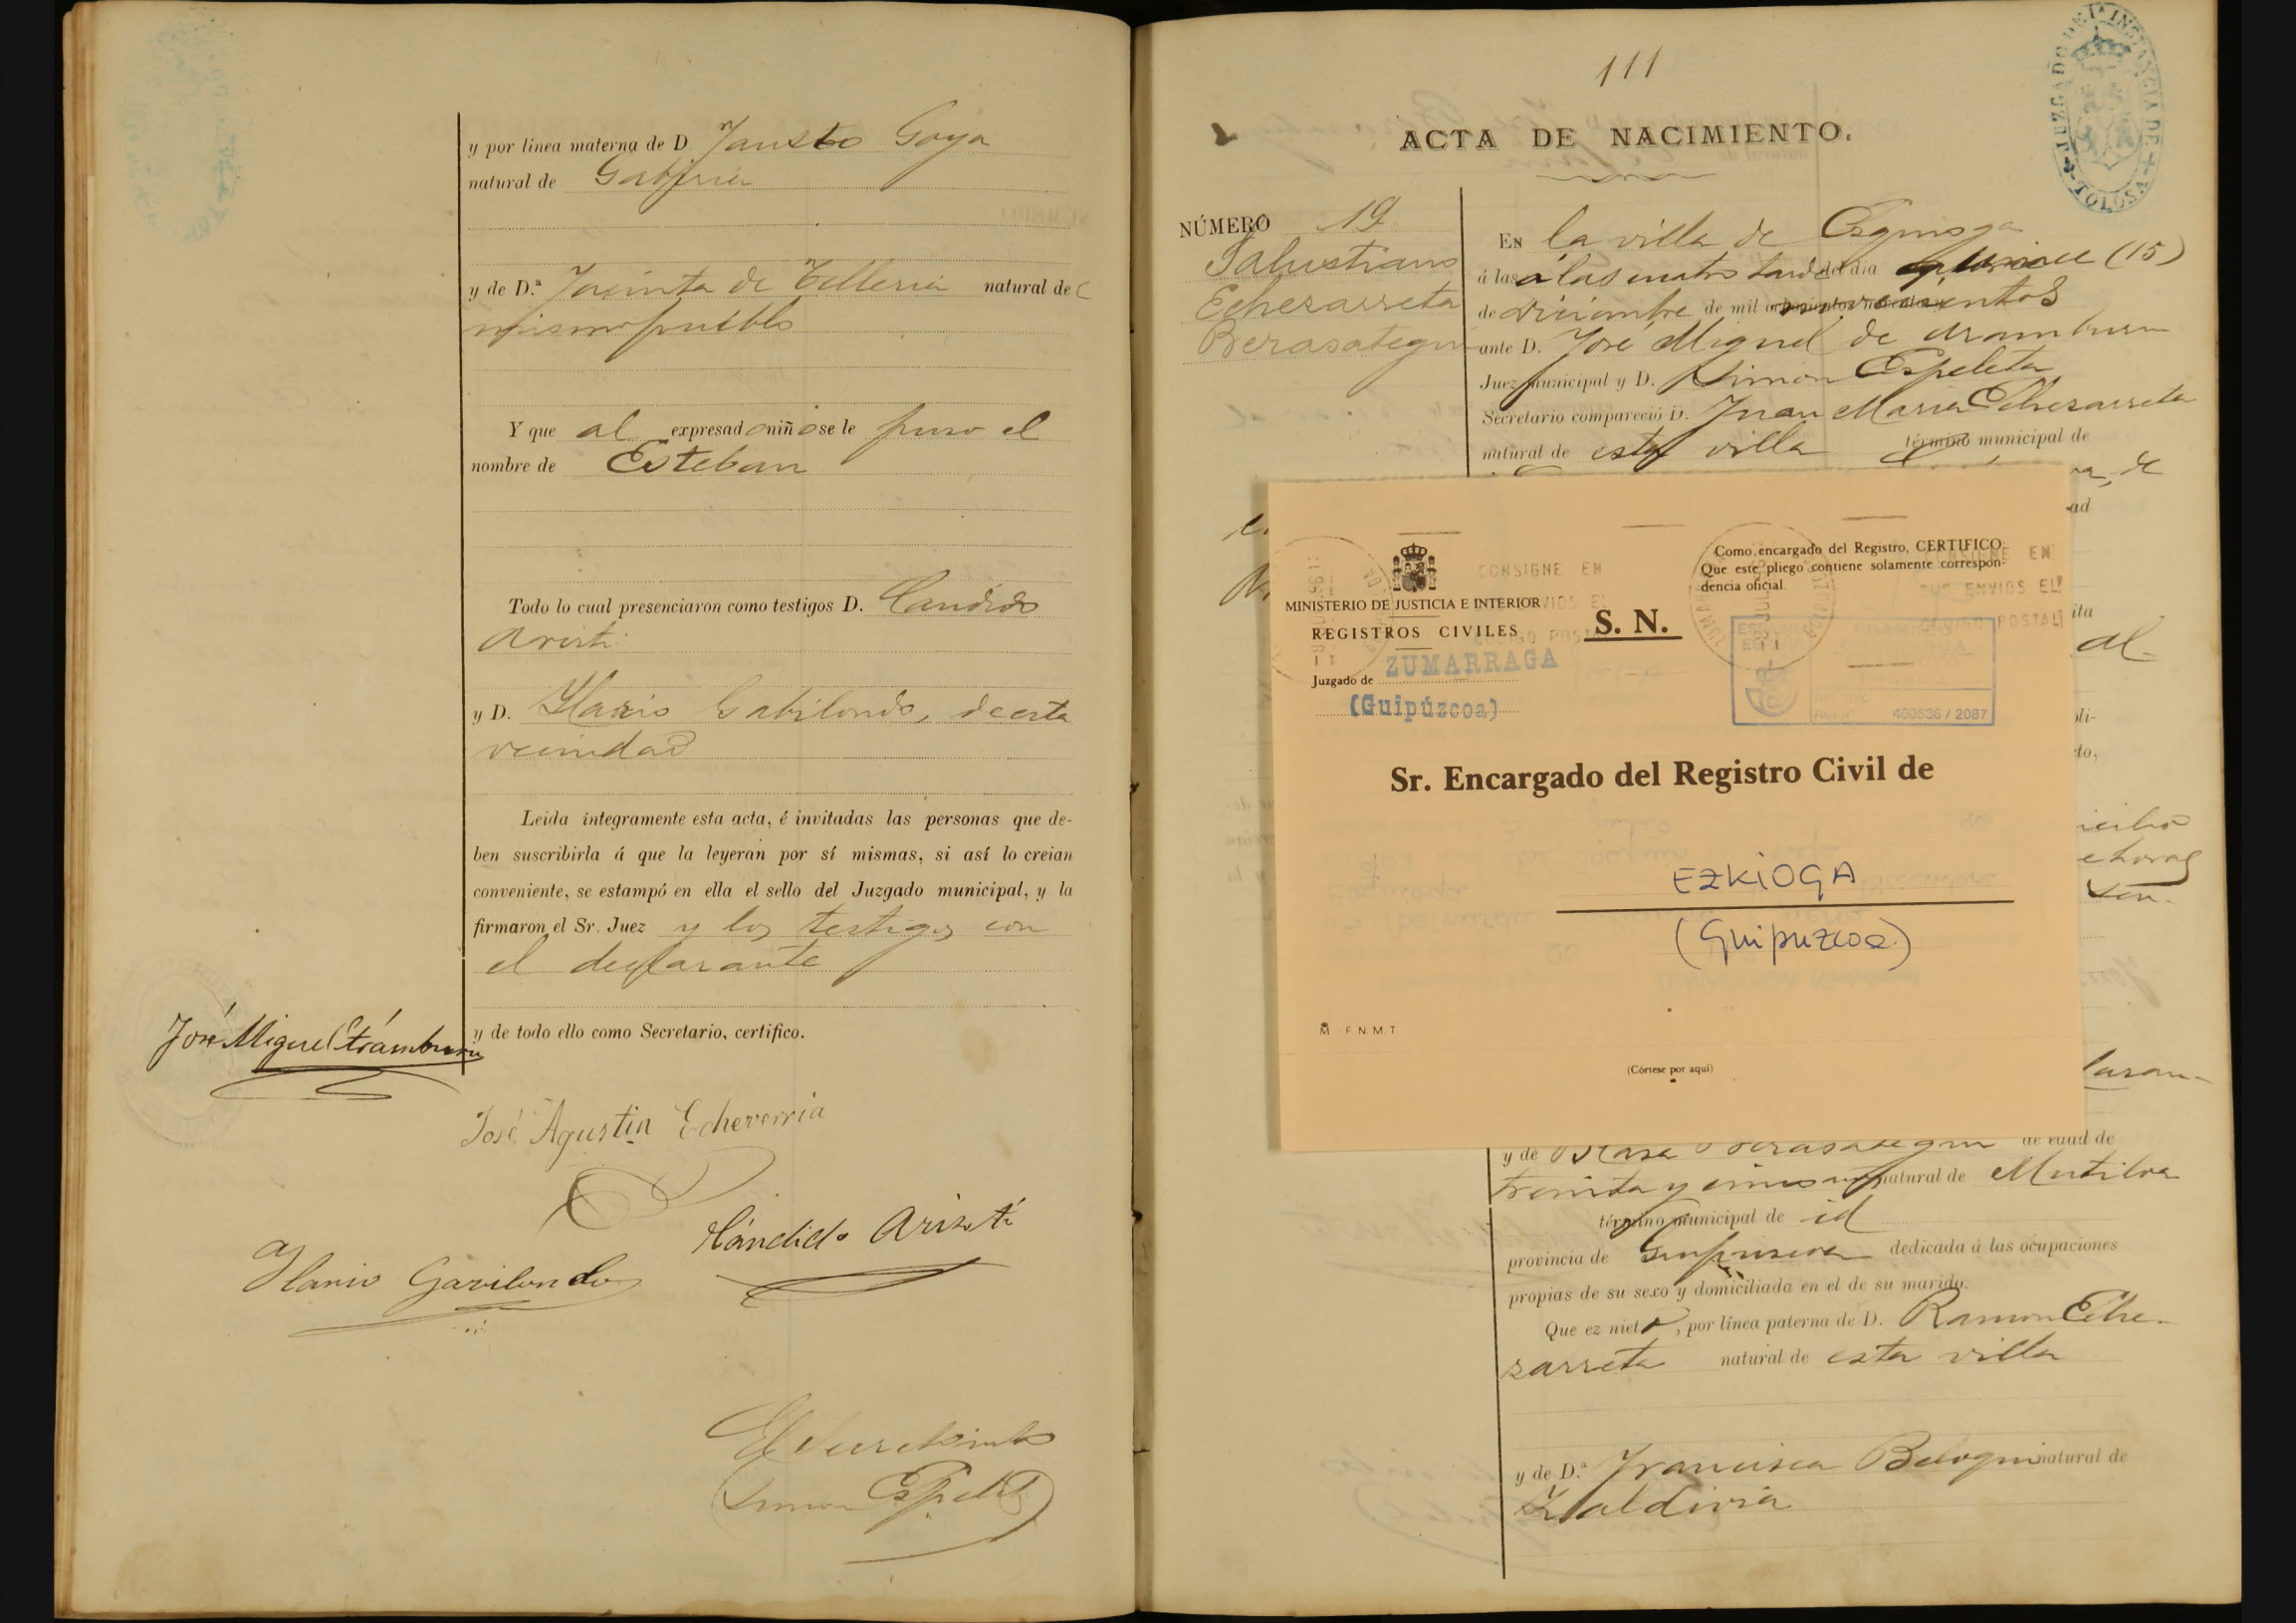 y por línea materna de D. Fausto Goya
natural de Gabiria
y de D.ª Jacinta de Telleria natural del
mismo pueblo
Y que al expresado niño se le puso el
nombre de Esteban
Todo lo cual presenciaron como testigos D. Candido
Aristi
y D. Ilario Gabilondo, de esta
vecindad
Leida íntegramente esta acta, é invitadas las personas que de-
ben suscribirla á que la leyeran por sí mismas, si así lo creian
conveniente, se estampó en ella el sello del Juzgado municipal, y la
firmaron el Sr. Juez y los testigos con
el declarante
y de todo ello como Secretario, certifico.
José Miguel Arámburu
José Agustin Echeverria
Cándido Aristi
Ilario Gavilondo
El Secretario
Simon Espeleta
111
JUZGADO DE 1ª INSTANCIA DE TOLOSA
ACTA DE NACIMIENTO.
NÚMERO 19
Salustiano
Echezarreta
Berasategui
En la villa de Ezquioga
á las á las cuatro tarde del dia quince (15)
de diciembre de mil novecientos
ante D. José Miguel de Aramburu
Juez municipal y D. Simon Espeleta
Secretario compareció D. Juan Maria Echezarreta
natural de esta villa término municipal de
de
ad
ita
al
oli-
to,
MINISTERIO DE JUSTICIA E INTERIOR
REGISTROS CIVILES
S. N.
Juzgado de ZUMARRAGA
(Guipúzcoa)
Como encargado del Registro, CERTIFICO:
Que este pliego contiene solamente correspon-
dencia oficial.
CONSIGNE EN
SUS ENVIOS EL
CODIGO POSTAL
460536 / 2087
Sr. Encargado del Registro Civil de
EZKIOGA
(Guipuzcoa)
F.N.M.T
(Córtese por aquí)
y de Blasa Berasategui de edad de
treinta y cinco años natural de Mutiloa
término municipal de id
provincia de Guipuzcoa dedicada á las ocupaciones
propias de su sexo y domiciliada en el de su marido.
Que ez nieto, por línea paterna de D. Ramon Eche-
zarreta natural de esta villa
y de D.ª Francisca Beloqui natural de
Zaldivia